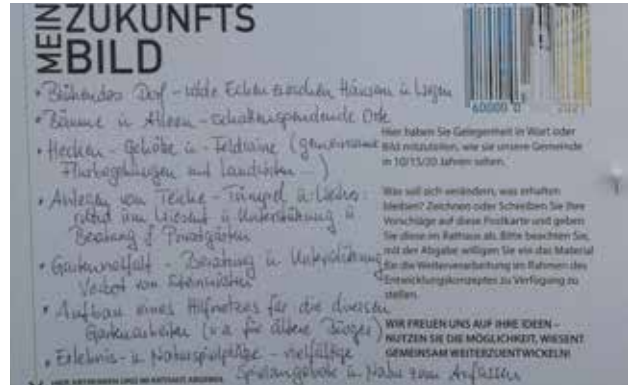 MEIN
ZUKUNFTS
BILD
• Blühendes Dorf - wilde Ecken zwischen Häusern u. Wegen
• Bäume u. Alleen - schattenspendende Orte
• Hecken - Gehölze u. Feldraine (gemeinsame
Flurbegehungen mit Landwirten ...)
• Anlegen von Teiche - Tümpel u.
um Wiesent u. Unterstützung u.
Beratung f. Privatgärten
• Gartenvielfalt - Beratung u. Unterstützung
Verbot von Steinwüsten
• Aufbau eines Hilfnetzes für die diversen
Gartenarbeiten (v.a. für ältere Bürger)
• Erlebnis- u. Naturspielplätze - vielfältige
Spielangebote u. Natur zum Anfassen
60000 0 2021
Hier haben Sie Gelegenheit in Wort oder
Bild mitzuteilen, wie sie unsere Gemeinde
in 10/15/20 Jahren sehen.
Was soll sich verändern, was erhalten
bleiben? Zeichnen oder Schreiben Sie Ihre
Vorschläge auf diese Postkarte und geben
Sie diese im Rathaus ab. Bitte beachten Sie,
mit der Abgabe willigen Sie ein das Material
für die Weiterverarbeitung im Rahmen des
Entwicklungskonzeptes zu Verfügung zu
stellen.
WIR FREUEN UNS AUF IHRE IDEEN –
NUTZEN SIE DIE MÖGLICHKEIT, WIESENT
GEMEINSAM WEITERZUENTWICKELN!
HIER ABTRENNEN UND IM RATHAUS ABGEBEN